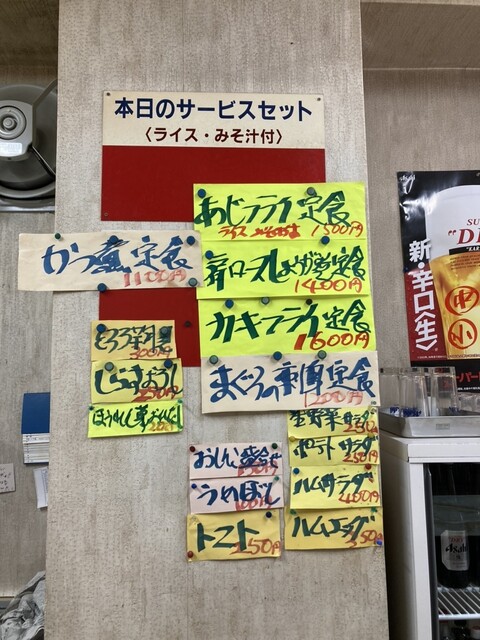 本日のサービスセット
〈ライス・みそ汁付〉
あじフライ定食
ライス みそ汁付 1500円
かつ煮定食
1100円
肩ロースしょうが焼定食
1400円
カキフライ定食
1600円
まぐろの刺身定食
1200円
とろろ芋
300円
しらすおろし
250円
生野菜サラダ
250
ポテトサラダ
250円
ハムサラダ
400円
ハムエッグ
350
おしんこ盛合せ
うめぼし
100円
トマト
250円
新・辛口〈生〉
中
小
Asahi